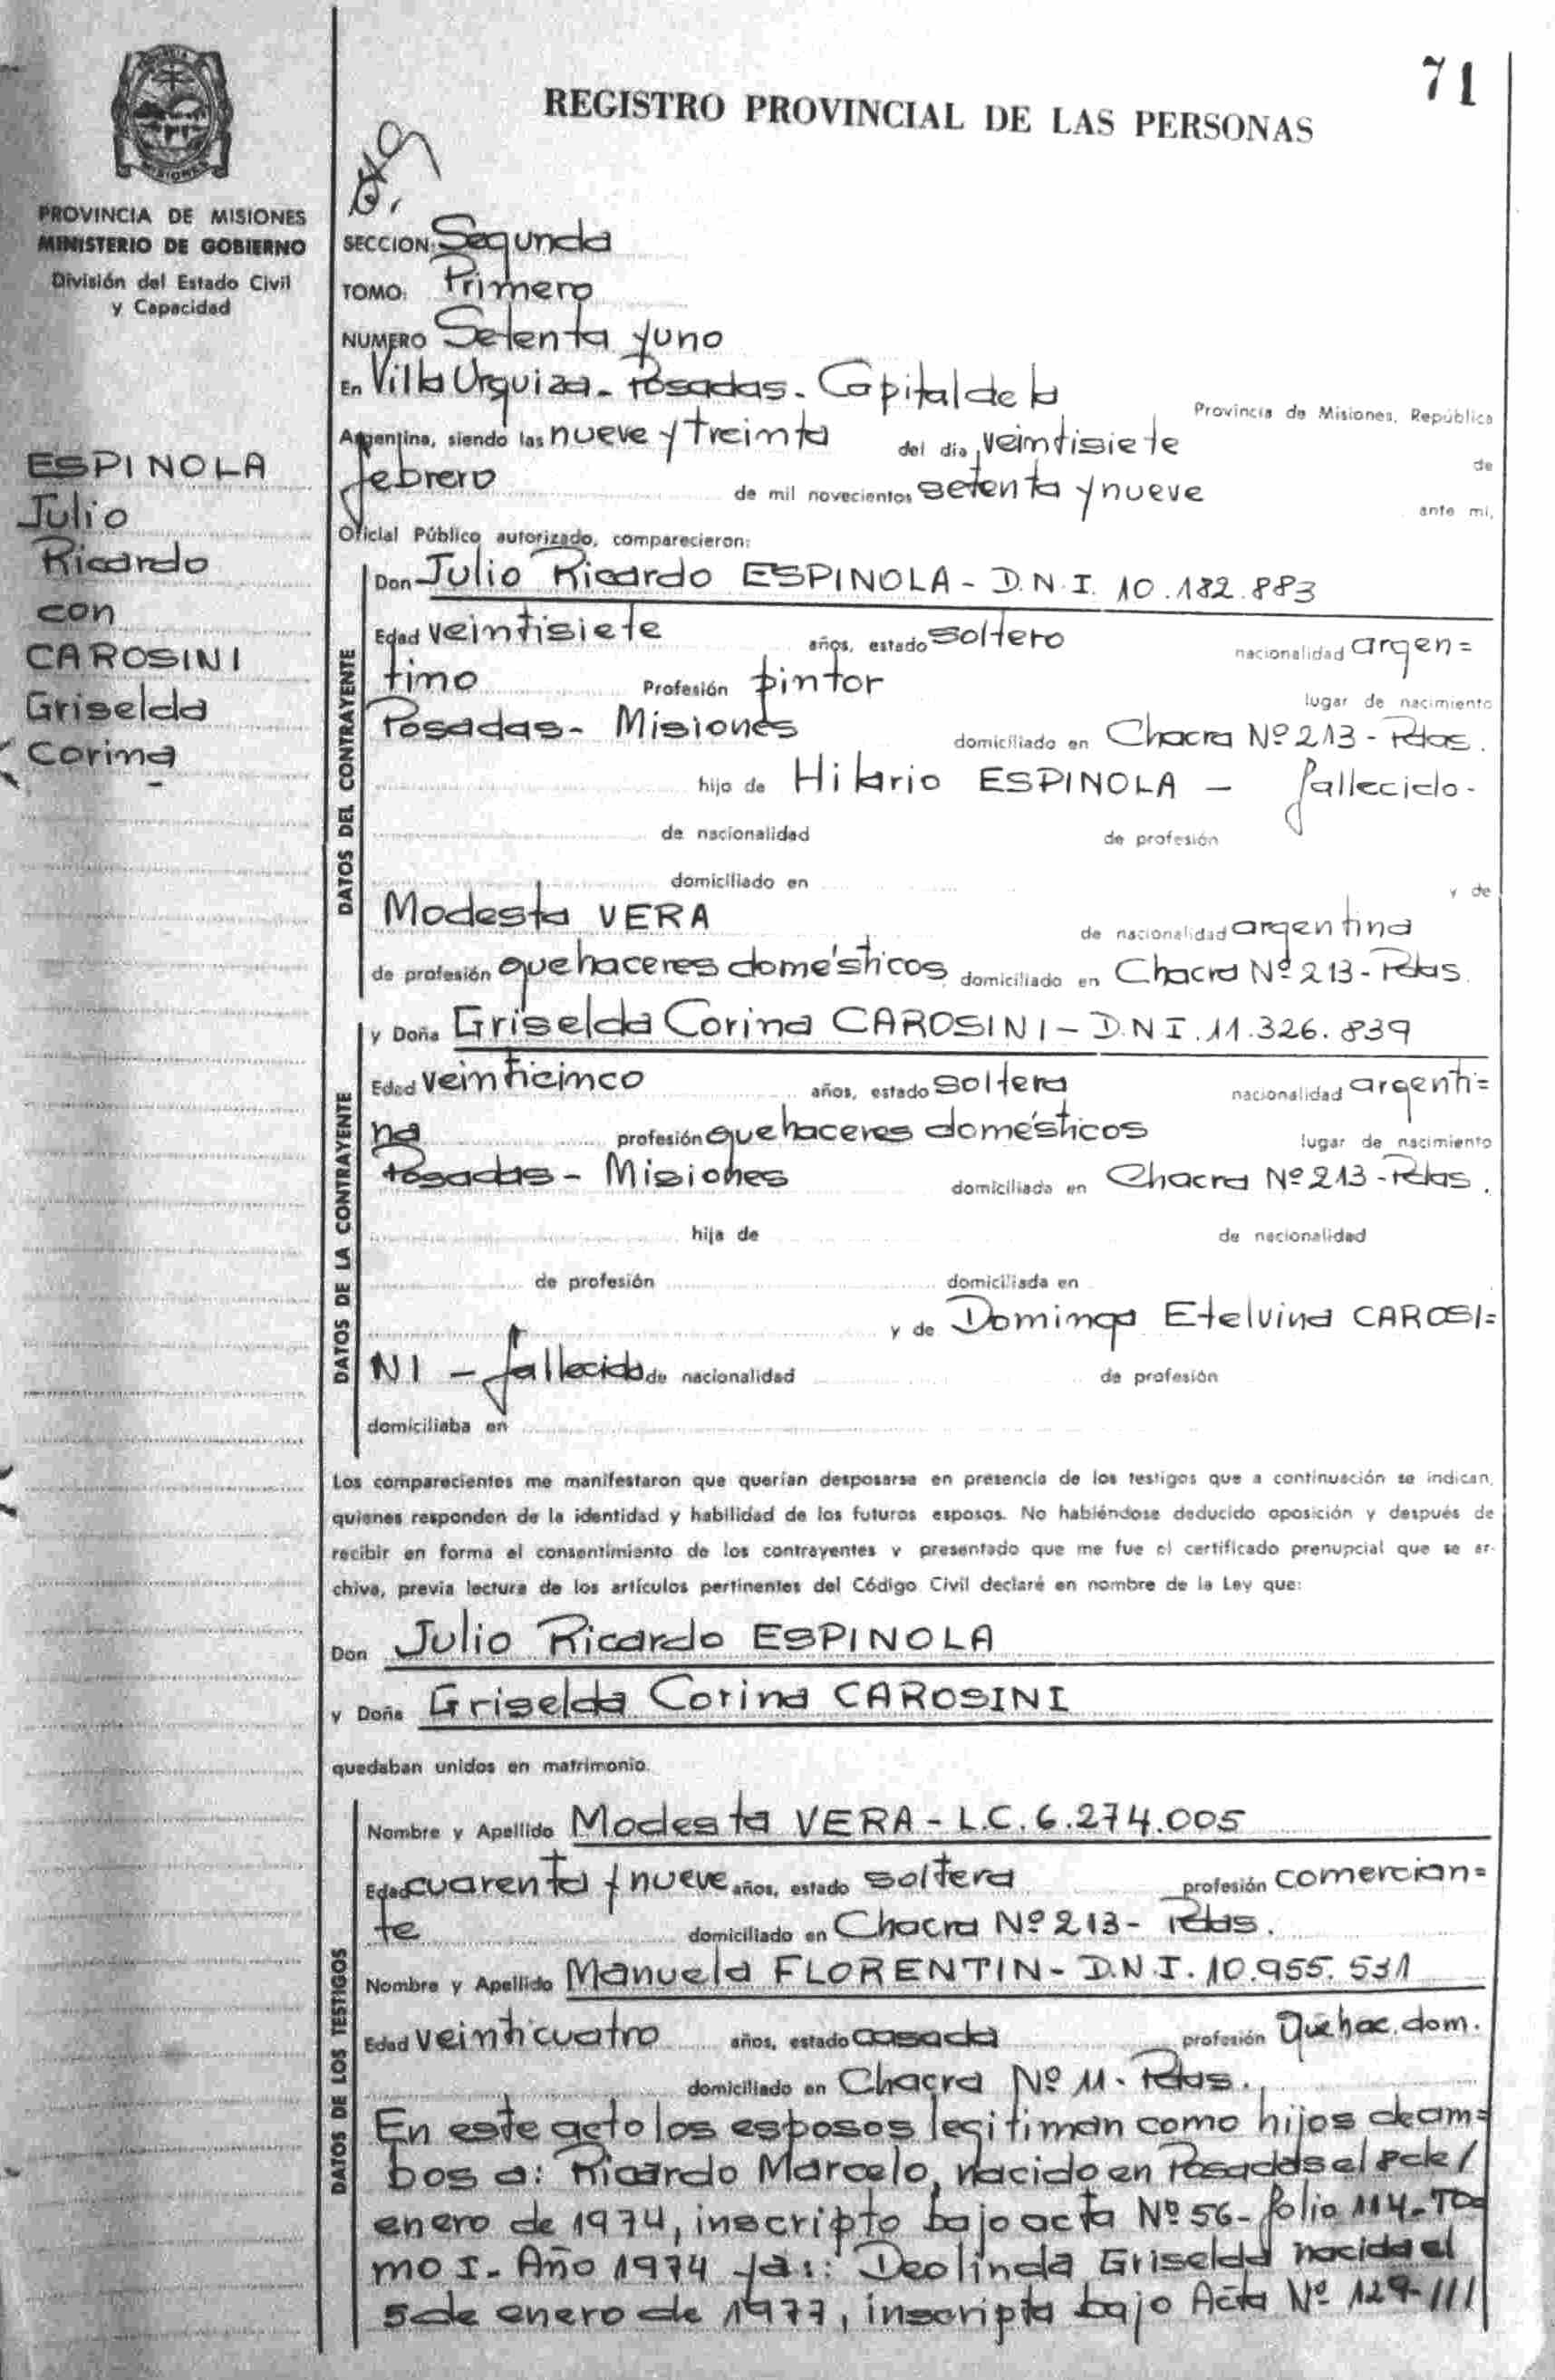 71
REGISTRO PROVINCIAL DE LAS PERSONAS
MISIONES
PROVINCIA DE MISIONES
MINISTERIO DE GOBIERNO
División del Estado Civil
y Capacidad
ESPINOLA
Julio
Ricardo
con
CAROSINI
Griselda
Corina
SECCION: Segunda
TOMO: Primero
NUMERO Setenta y uno
En Villa Urquiza - Posadas - Capital de la Provincia de Misiones, República
Argentina, siendo las nueve y treinta del día veintisiete de
febrero de mil novecientos setenta y nueve ante mi,
Oficial Público autorizado, comparecieron:
DATOS DEL CONTRAYENTE
Don Julio Ricardo ESPINOLA - D.N.I. 10.182.883
Edad veintisiete años, estado soltero nacionalidad argen=
tino Profesión pintor lugar de nacimiento
Posadas - Misiones domiciliado en Chacra Nº 213 - Pdas.
hijo de Hilario ESPINOLA - fallecido -
de nacionalidad de profesión
domiciliado en y de
Modesta VERA de nacionalidad argentina
de profesión quehaceres domésticos domiciliado en Chacra Nº 213 - Pdas.
DATOS DE LA CONTRAYENTE
y Doña Griselda Corina CAROSINI - D.N.I. 11.326.839
Edad veinticinco años, estado soltera nacionalidad argenti=
na profesión quehaceres domésticos lugar de nacimiento
Posadas - Misiones domiciliada en Chacra Nº 213 - Pdas.
hija de de nacionalidad
de profesión domiciliada en
y de Dominga Etelvina CAROSI=
NI - fallecida de nacionalidad de profesión
domiciliaba en
Los comparecientes me manifestaron que querían desposarse en presencia de los testigos que a continuación se indican,
quienes responden de la identidad y habilidad de los futuros esposos. No habiéndose deducido oposición y después de
recibir en forma el consentimiento de los contrayentes y presentado que me fue el certificado prenupcial que se ar-
chiva, previa lectura de los artículos pertinentes del Código Civil declaré en nombre de la Ley que:
Don Julio Ricardo ESPINOLA
y Doña Griselda Corina CAROSINI
quedaban unidos en matrimonio.
DATOS DE LOS TESTIGOS
Nombre y Apellido Modesta VERA - L.C. 6.274.005
Edad cuarenta y nueve años, estado soltera profesión comercian=
te domiciliado en Chacra Nº 213 - Pdas.
Nombre y Apellido Manuela FLORENTIN - D.N.I. 10.955.531
Edad veinticuatro años, estado casada profesión Quehac. dom.
domiciliado en Chacra Nº 11 - Pdas.
En este acto los esposos legitiman como hijos de am=
bos a: Ricardo Marcelo, nacido en Posadas el de /
enero de 1974, inscripto bajo acta Nº 56 - folio 114 - To=
mo I - Año 1974 y a: Deolinda Griselda nacida el
5 de enero de 1977, inscripta bajo Acta Nº 129-///